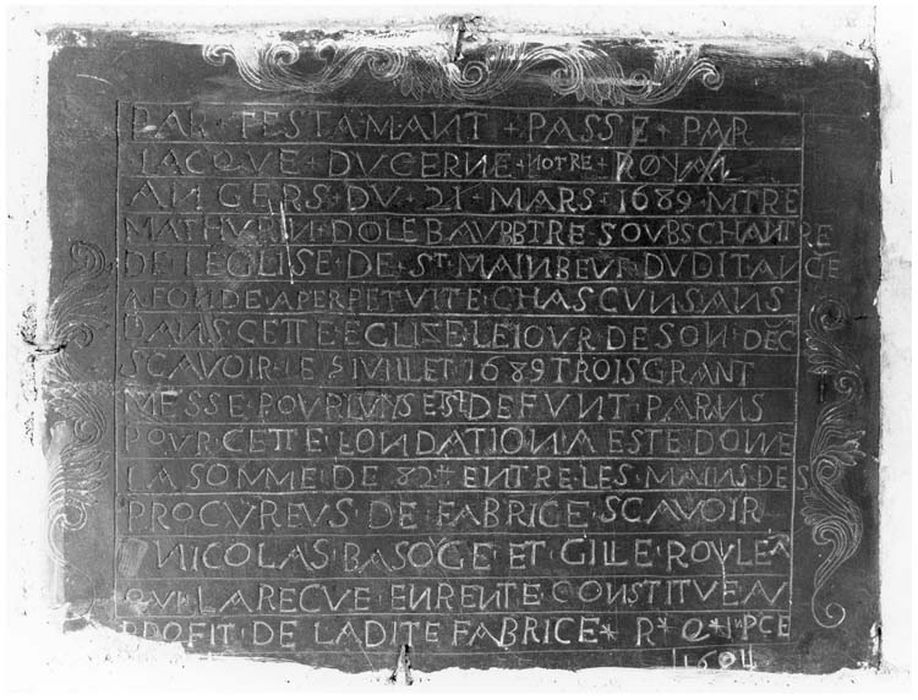 PAR · TESTAMANT + PASSE + PAR
IACQUE + DUGERNE + NOTRE + ROYAL
ANGERS · DV · 21 · MARS · 1689 · MTRE
MATHVRIN · DOLEBAV PBTRE SOVBSCHANTRE
DE LEGLISE · DE · ST · MAINBEVF · DVDIT ANGE
A FONDE · A PERPETVITE · CHASCVNS ANS
DANS CETTE EGLIZE · LE IOVR DE SON · DEC
SCAVOIR · LE 5 IVILLET · 1689 TROIS GRANT
MESSE · POVR LVY SEST DEFVNT · PARANS
POVR · CETTE FONDATION A ESTE DONNE
LA SOMME DE 82tt ENTRE · LES · MAINS DES
PROCVREVS · DE FABRICE · SCAVOIR
NICOLAS · BASOGE · ET · GILLE · ROVLEA
QVI LARECVE · EN RENTE · CONSTITVE AV
PROFIT · DE LADITE FABRICE * R * Q * IN PCE
1604